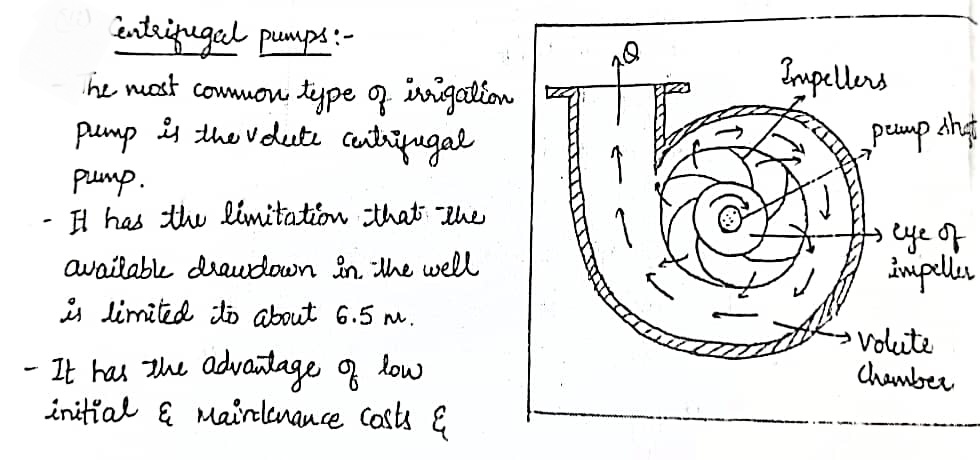 Centrifugal pumps:-
The most common type of irrigation
pump is the volute centrifugal
pump.
- It has the limitation that the
available drawdown in the well
is limited to about 6.5 m.
- It has the advantage of low
initial & maintenance costs &
Q
Impellers
pump shaft
eye of
impeller
volute
chamber